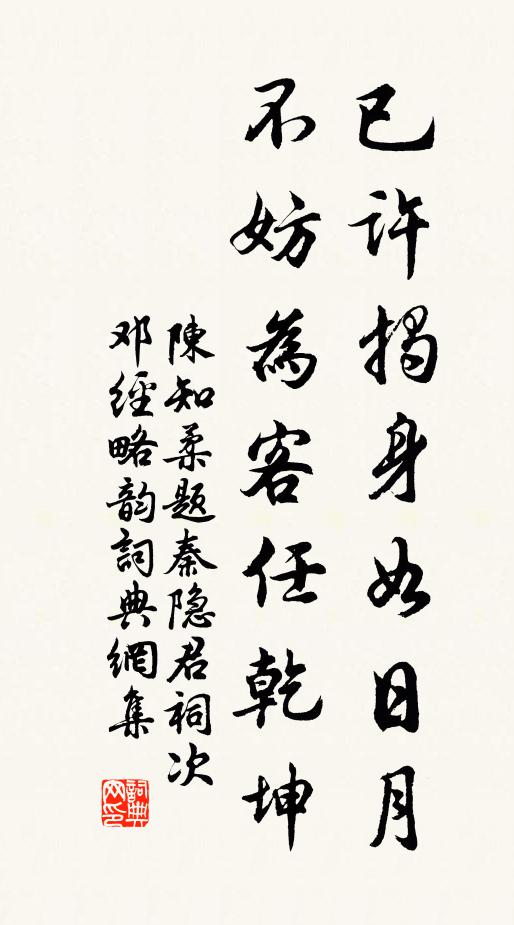 已许揭身如日月
不妨為客任乾坤
陳知柔题秦隐君祠次
邓經略韵詞典網集
詞典
网印